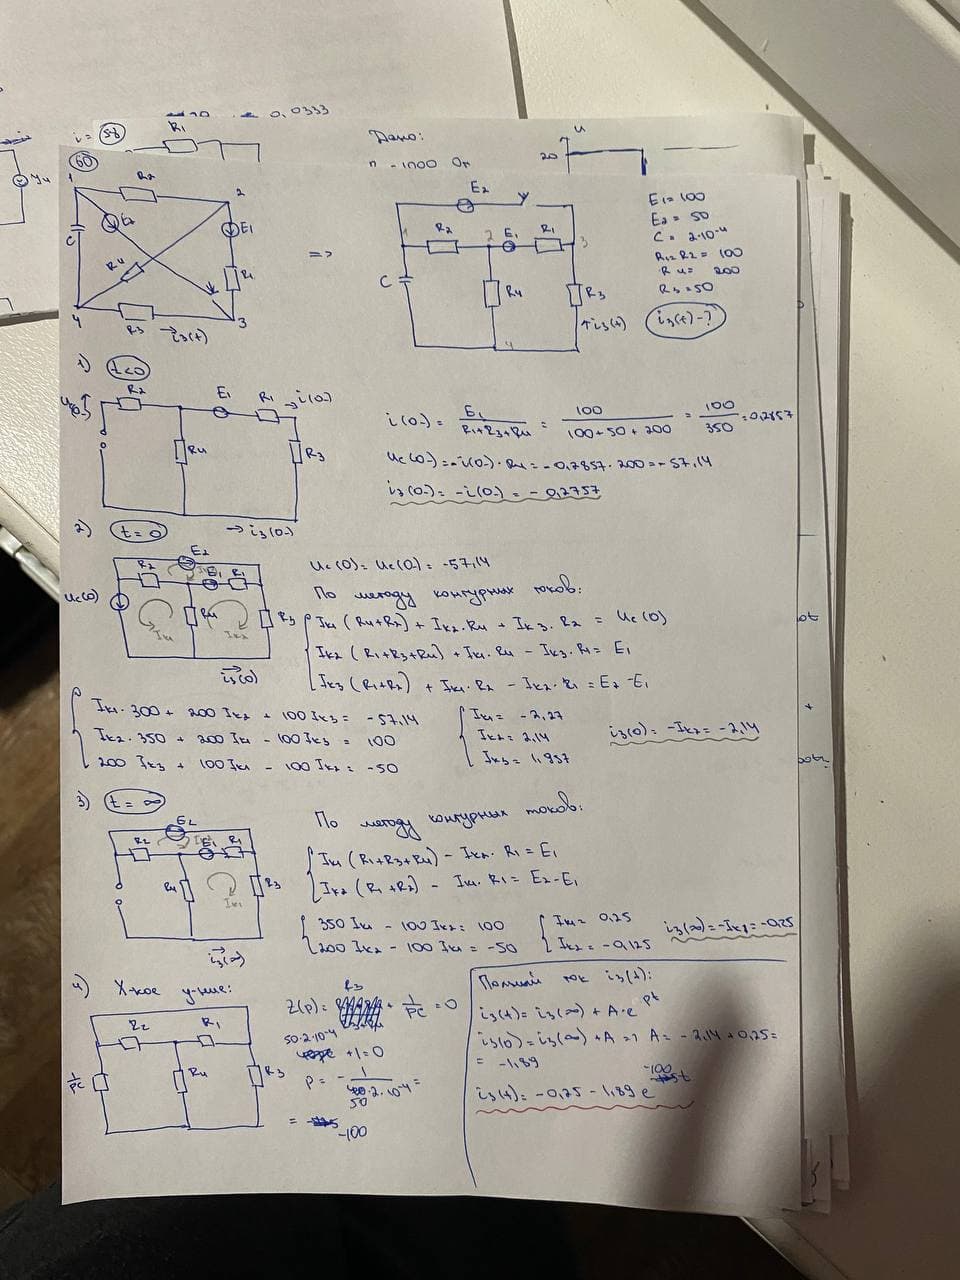 0,0333
i = 58
R1
Дано:
u
20
60
1
R2
2
E2
E1
C
R4
R1
4
R3
3
i3(t)
=>
E2
1
R2
2
E1
R1
3
C
R4
R3
↑i3(t)
4
E1 = 100
E2 = 50
C = 2·10-4
R1= R2 = 100
R4 = 200
R3 = 50
i3(t) - ?
1) t<0
R2
E1
R1
i(0-)
R4
R3
→ i3(0-)
i(0-) = E1 / (R1+R3+R4) = 100 / (100+50+200) = 100 / 350 = 0,2857
Uc(0-) = -i(0-)·R4 = -0,2857·200 = -57,14
i3(0-) = -i(0-) = -0,2757
2) t=0
E2
R2
E1
R1
Uc(0)
R4
R3
Iк1
Iк2
i3(0)
Uc(0) = Uc(0-) = -57,14
По методу контурных токов:
Iк1 (R4+R2) + Iк2·R4 + Iк3·R2 = Uc(0)
Iк2 (R1+R3+R4) + Iк1·R4 - Iк3·R1 = E1
Iк3 (R1+R2) + Iк1·R2 - Iк2·R1 = E2-E1
Iк1·300 + 200 Iк2 + 100 Iк3 = -57,14
Iк2·350 + 200 Iк1 - 100 Iк3 = 100
200 Iк3 + 100 Iк1 - 100 Iк2 = -50
Iк1 = -2,27
Iк2 = 2,14
Iк3 = 1,957
i3(0) = -Iк2 = -2,14
3) t=∞
E2
R2
E1
R1
R4
R3
Iк1
i3(∞)
По методу контурных токов:
Iк1 (R1+R3+R4) - Iк2·R1 = E1
Iк2 (R1+R2) - Iк1·R1 = E2-E1
350 Iк1 - 100 Iк2 = 100
200 Iк2 - 100 Iк1 = -50
Iк1 = 0,25
Iк2 = -0,125
i3(∞) = -Iк1 = -0,25
4) Х-кое у-ние:
R2
R1
1/pC
R4
R3
Z(p) = R3 + 1/pC = 0
50·2·10-4
+1=0
p = - 1 / 50·2·10-4 =
= -100
Полный ток i3(t):
i3(t) = i3(∞) + A·e pt
i3(0) = i3(∞) + A => A = -2,14 + 0,25 =
= -1,89
i3(t) = -0,25 - 1,89 e -100t